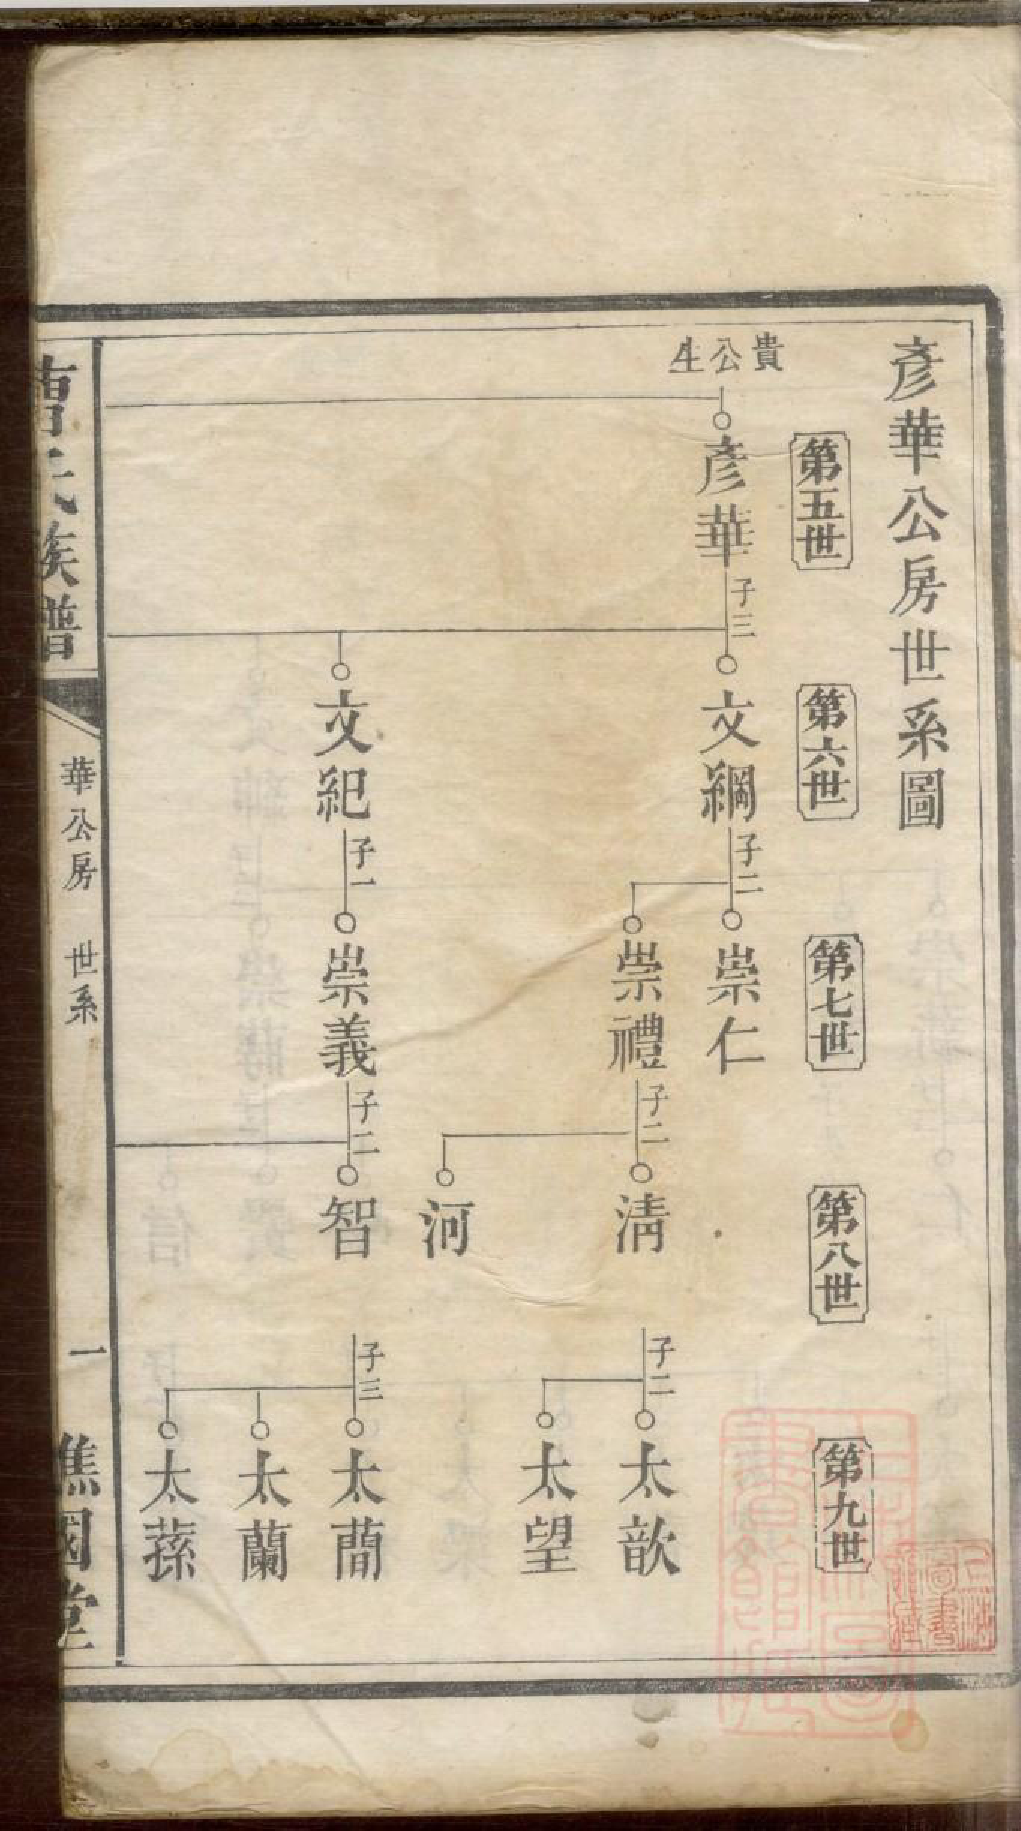 彥華公房世系圖
第五世
第六世
第七世
第八世
第九世
貴公生
彥華
子三
文綱
子二
崇仁
崇禮
子二
清
子二
太歆
太望
河
文紀
子一
崇義
子二
智
子三
太蕳
太蘭
太蓀
曹氏族譜
華公房 世系
一
譙國堂